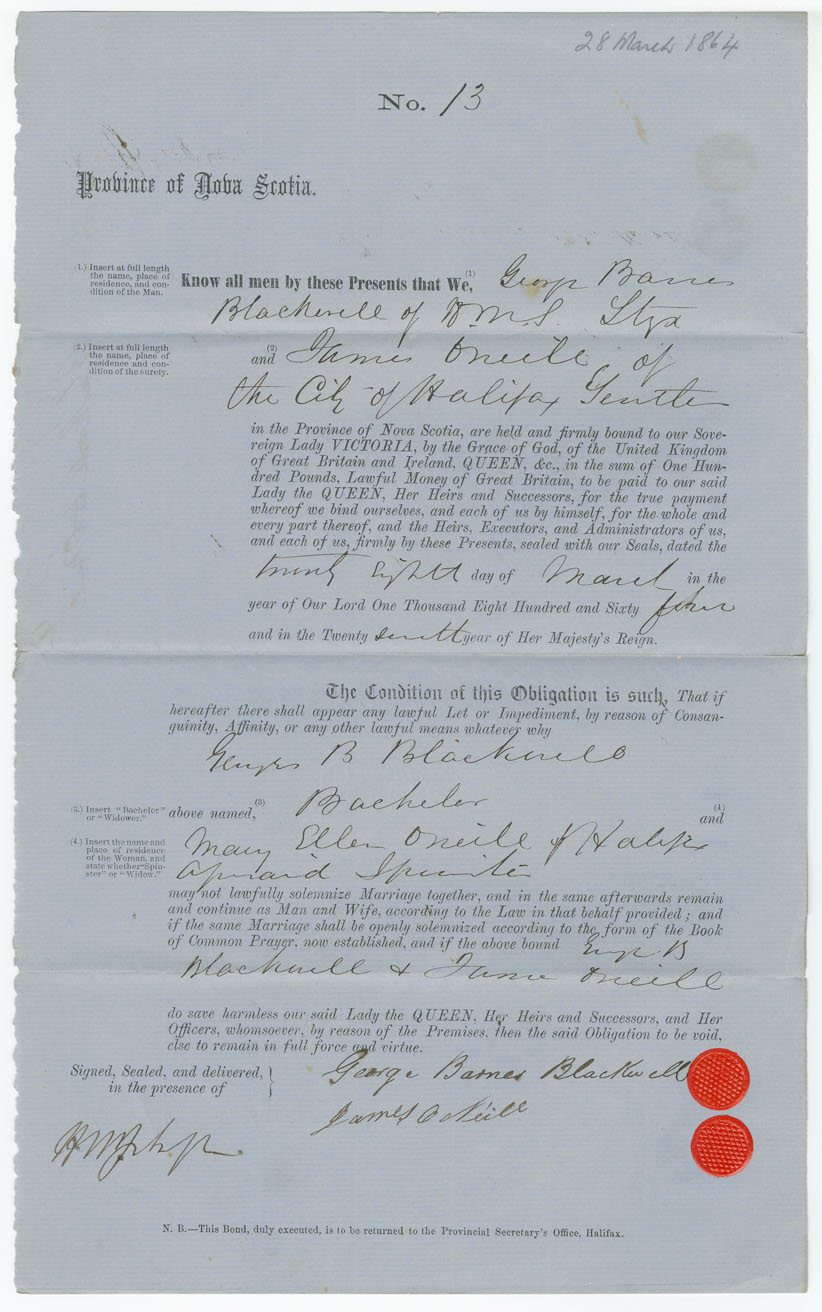 28 March 1864
No. 13
Province of Nova Scotia.
(1.) Insert at full length
the name, place of
residence, and con-
dition of the Man.
Know all men by these Presents that We, (1) George Barnes
Blackwell of H.M.S. Styx
(2.) Insert at full length
the name, place of
residence and con-
dition of the surety.
(2)
and James Oneill of
the City of Halifax Gentle
in the Province of Nova Scotia, are held and firmly bound to our Sove-
reign Lady VICTORIA, by the Grace of God, of the United Kingdom
of Great Britain and Ireland, QUEEN, &c., in the sum of One Hun-
dred Pounds, Lawful Money of Great Britain, to be paid to our said
Lady the QUEEN, Her Heirs and Successors, for the true payment
whereof we bind ourselves, and each of us by himself, for the whole and
every part thereof, and the Heirs, Executors, and Administrators of us,
and each of us, firmly by these Presents, sealed with our Seals, dated the
twenty Eighth day of March in the
year of Our Lord One Thousand Eight Hundred and Sixty four
and in the Twenty seventh year of Her Majesty's Reign.
The Condition of this Obligation is such, That if
hereafter there shall appear any lawful Let or Impediment, by reason of Consan-
guinity, Affinity, or any other lawful means whatever why
George B Blackwell
(3.) Insert "Bachelor"
or "Widower."
above named, (3) Bachelor (4) and
(4.) Insert the name and
place of residence
of the Woman, and
state whether "Spin-
ster" or "Widow."
Mary Ellen Oneill of Halifax
aforesaid Spinster
may not lawfully solemnize Marriage together, and in the same afterwards remain
and continue as Man and Wife, according to the Law in that behalf provided; and
if the same Marriage shall be openly solemnized according to the form of the Book
of Common Prayer, now established, and if the above bound George B
Blackwell & James Oneill
do save harmless our said Lady the QUEEN, Her Heirs and Successors, and Her
Officers, whomsoever, by reason of the Premises, then the said Obligation to be void,
else to remain in full force and virtue.
Signed, Sealed, and delivered,
in the presence of
George Barnes Blackwell
James O Neill
N. B.—This Bond, duly executed, is to be returned to the Provincial Secretary's Office, Halifax.